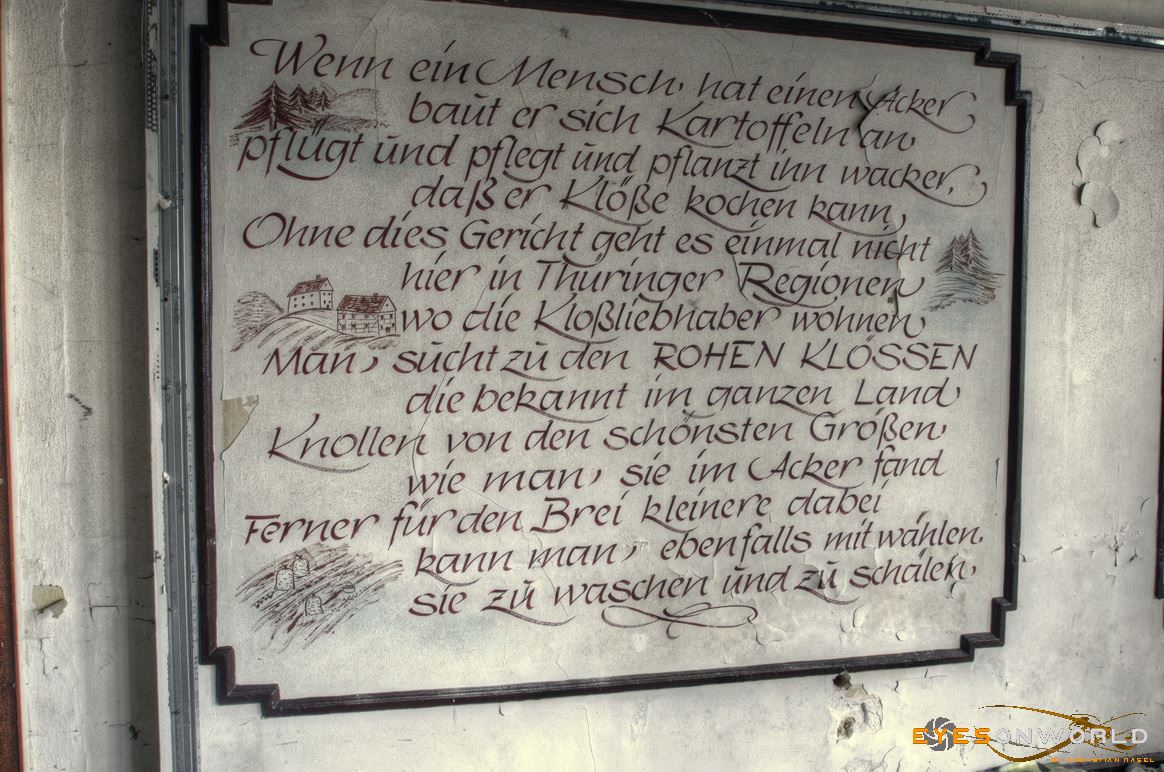 Wenn ein Mensch hat einen Acker
baut er sich Kartoffeln an
pflügt und pflegt und pflanzt ihn wacker,
daß er Klöße kochen kann,
Ohne dies Gericht geht es einmal nicht
hier in Thüringer Regionen
wo die Kloßliebhaber wohnen
Man sucht zu den ROHEN KLÖSSEN
die bekannt im ganzen Land
Knollen von den schönsten Größen
wie man sie im Acker fand
Ferner für den Brei kleinere dabei
kann man ebenfalls mit wählen.
sie zu waschen und zu schälen
EYESONWORLD
BY SEBASTIAN NASEL